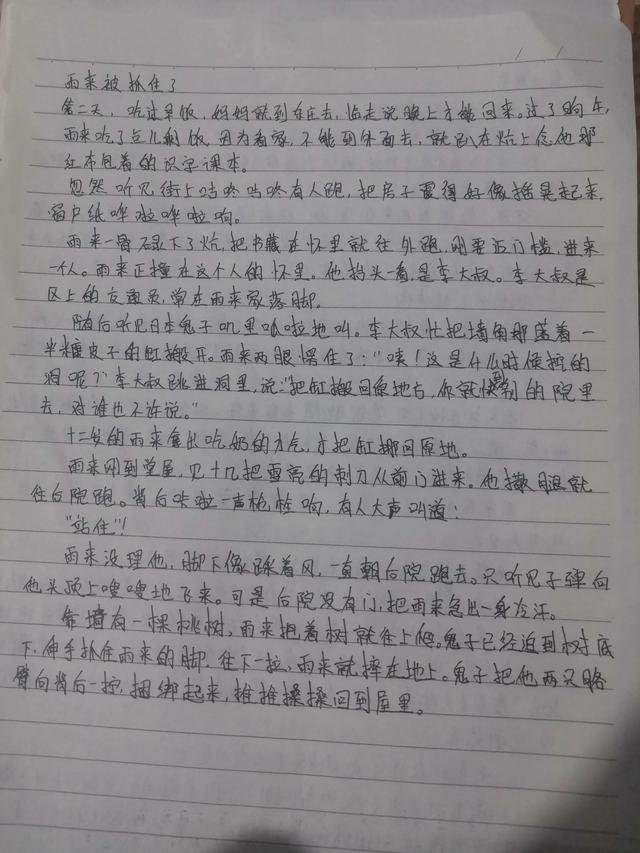 雨来被抓住了
第二天，吃过早饭，妈妈就到东庄去，临走说晚上才能回来。过了晌午，
雨来吃了点儿剩饭，因为看家，不能到外面去，就趴在炕上念他那
红布包着的识字课本。
忽然听见街上咕咚咕咚有人跑，把房子震得好像摇晃起来，
窗户纸哗啦哗啦响。
雨来一骨碌下了炕，把书藏在怀里就往外跑，刚要迈门槛，进来
一个人。雨来正撞在这个人的怀里。他抬头一看，是李大叔。李大叔是
区上的交通员，常在雨来家落脚。
随后听见日本鬼子叽里呱啦地叫。李大叔忙把墙角那盛着一
半糠皮子的缸搬开。雨来两眼愣住了："咦！这是什么时候挖的
洞呢？"李大叔跳进洞里，说："把缸搬回原地方，你就快到别的院里
去，对谁也不许说。"
十二岁的雨来拿出吃奶的力气，才把缸挪回原地。
雨来刚到堂屋，见十几把雪亮的刺刀从前门进来。他撒腿就
往后院跑。背后咔啦一声枪栓响，有人大声叫道：
"站住"！
雨来没理他，脚下像踩着风，一直朝后院跑去。只听见子弹向
他头顶上嗖嗖地飞来。可是后院没有门，把雨来急出一身冷汗。
靠墙有一棵桃树，雨来抱着树就往上爬。鬼子已经追到树底
下，伸手抓住雨来的脚，往下一拉，雨来就摔在地上。鬼子把他两只胳
臂向背后一拧，捆绑起来，推推搡搡回到屋里。